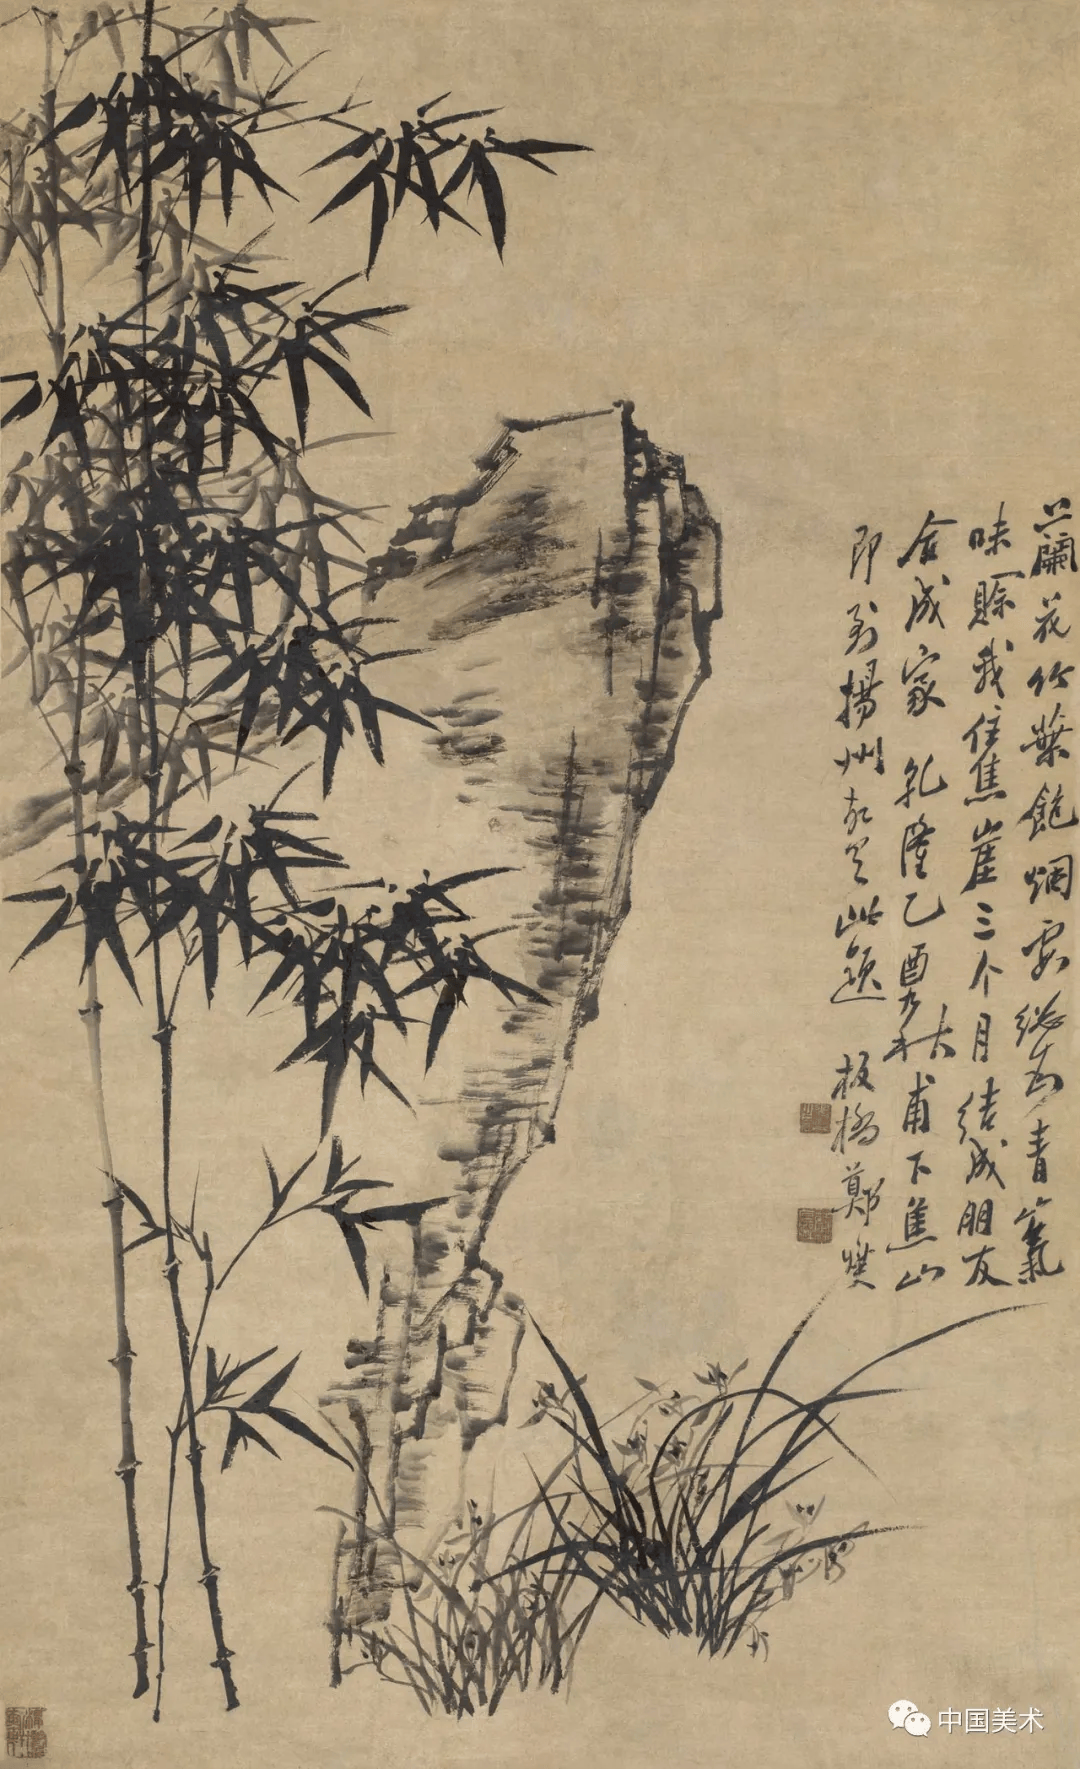 蘭花竹葉飽烟霞總為青氣
味一賖我住焦崖三个月結成朋友
合成家 乾隆乙酉九秋甫下焦山
即到揚州故有此題 板橋鄭燮
中国美术